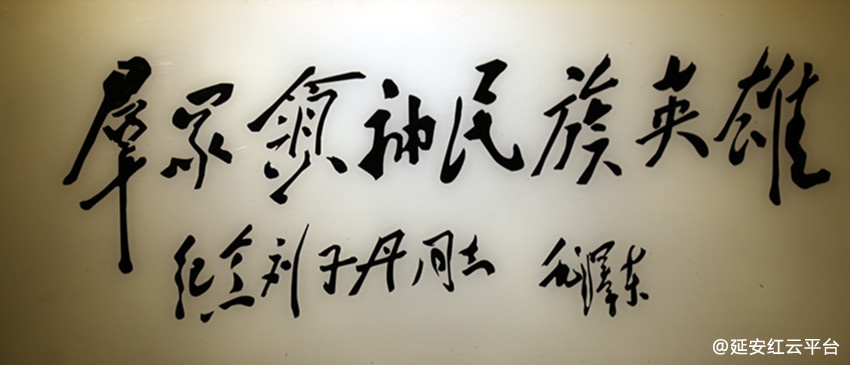 羣众领袖民族英雄
纪念刘子丹同志 毛泽东
@延安红云平台